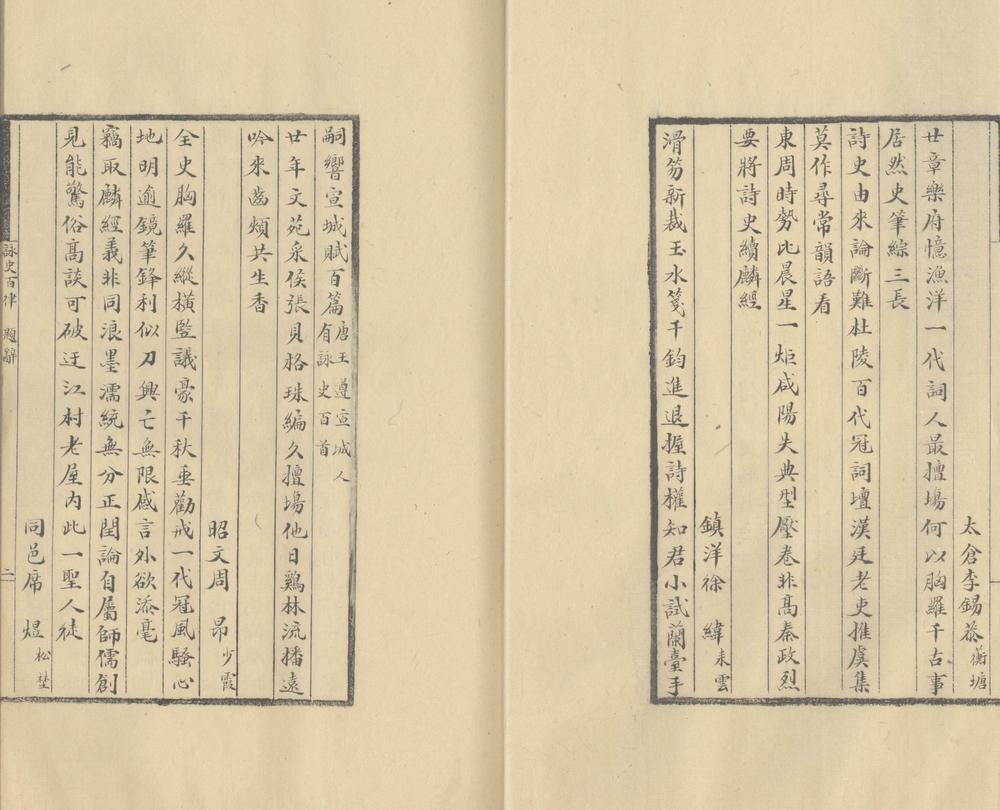 太倉李錫恭衡塘
廿章樂府憶漁洋一代詞人最擅場何以胸羅千古事
居然史筆綜三長
詩史由來論斷難杜陵百代冠詞壇漢廷老吏推虞集
莫作尋常韻語看
東周時勢比晨星一炬咸陽失典型壓卷非高秦政烈
要將詩史續麟經
鎮洋徐 緯耒雲
滑笏新裁玉水箋千鈞進退握詩權知君小試蘭臺手
嗣響宣城賦百篇唐王遵宣城人有詠史百首
廿年文苑采侯張貝格珠編久擅場他日鷄林流播遠
吟來齒頰共生香
昭文周 昂少霞
全史胸羅久縱橫豎議豪千秋垂勸戒一代冠風騷心
地明逾鏡筆鋒利似刀興亡無限感言外欲添毫
竊取麟經義非同浪墨濡統無分正閏論自屬師儒創
見能驚俗高談可破迂江村老屋內此一聖人徒
同邑席 煜松埜
詠史百律 題辭 二